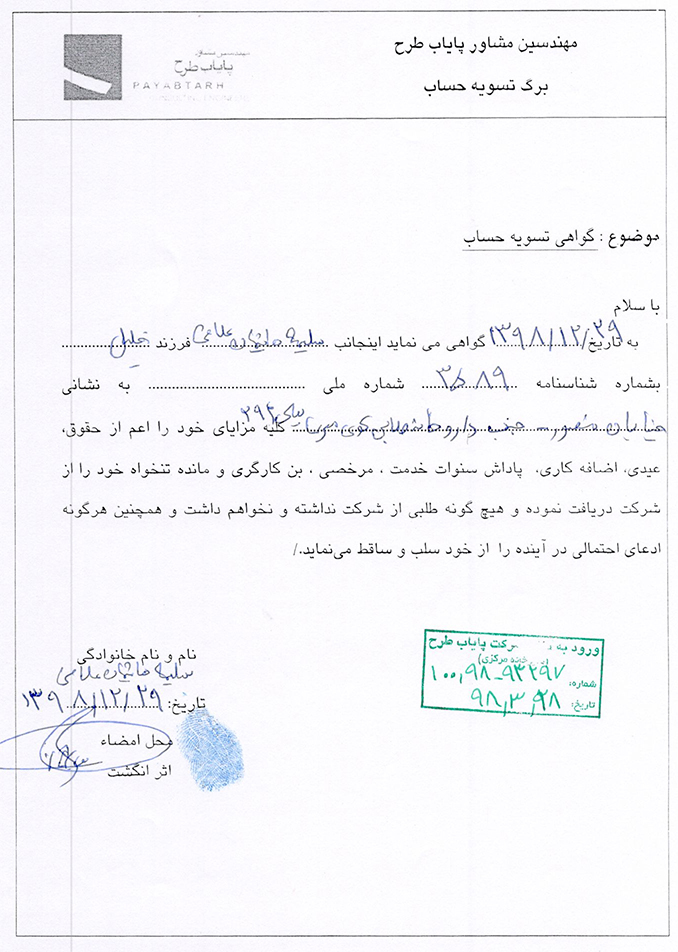 مهندسین مشاور پایاب طرح
برگ تسویه حساب
مهندسین مشاور
پایاب طرح
PAYABTARH
موضوع : گواهی تسویه حساب
با سلام
به تاریخ ۱۳۹۸/۱۲/۲۹ گواهی می نماید اینجانب فرزند خلیل
بشماره شناسنامه ۳۵۸۹ شماره ملی به نشانی
خیابان کلیه مزایای خود را اعم از حقوق،
عیدی، اضافه کاری، پاداش سنوات خدمت ، مرخصی ، بن کارگری و مانده تنخواه خود را از
شرکت دریافت نموده و هیچ گونه طلبی از شرکت نداشته و نخواهم داشت و همچنین هرگونه
ادعای احتمالی در آینده را از خود سلب و ساقط می‌نماید./
نام و نام خانوادگی
تاریخ: ۱۳۹۸/۱۲/۲۹
محل امضاء
اثر انگشت
ورود به شرکت پایاب طرح
شماره: ۱۰۰,۹۸-۹۳۲۹۷
تاریخ: ۹۸,۳,۲۸